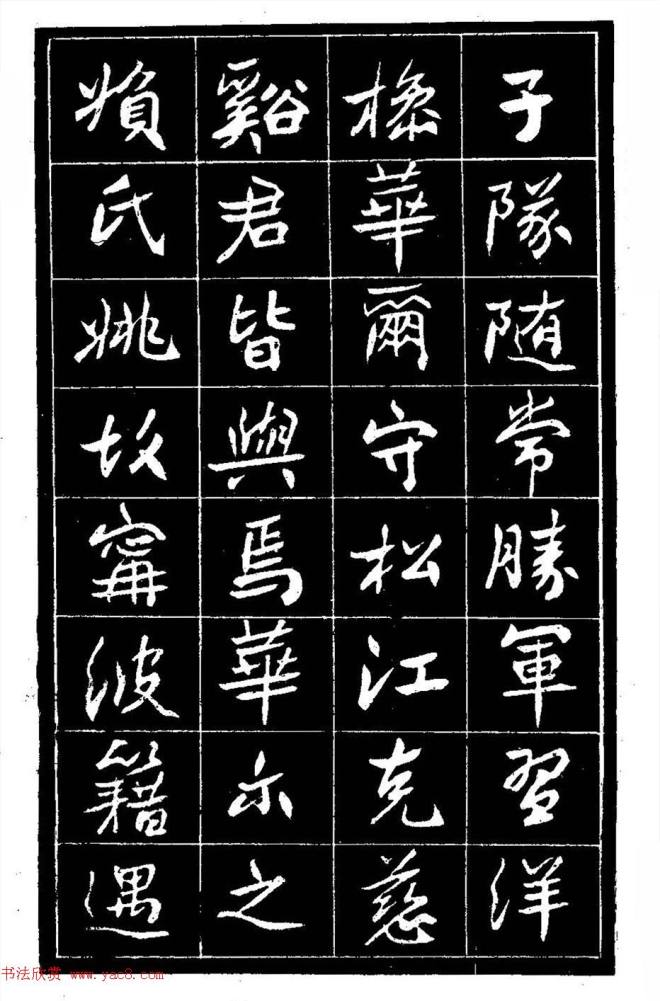 子隊随常勝軍習洋
槍華爾守松江克慈
谿君皆與焉華尒之
嬪氏姚故寧波籍遇
书法欣赏 www.yac8.com